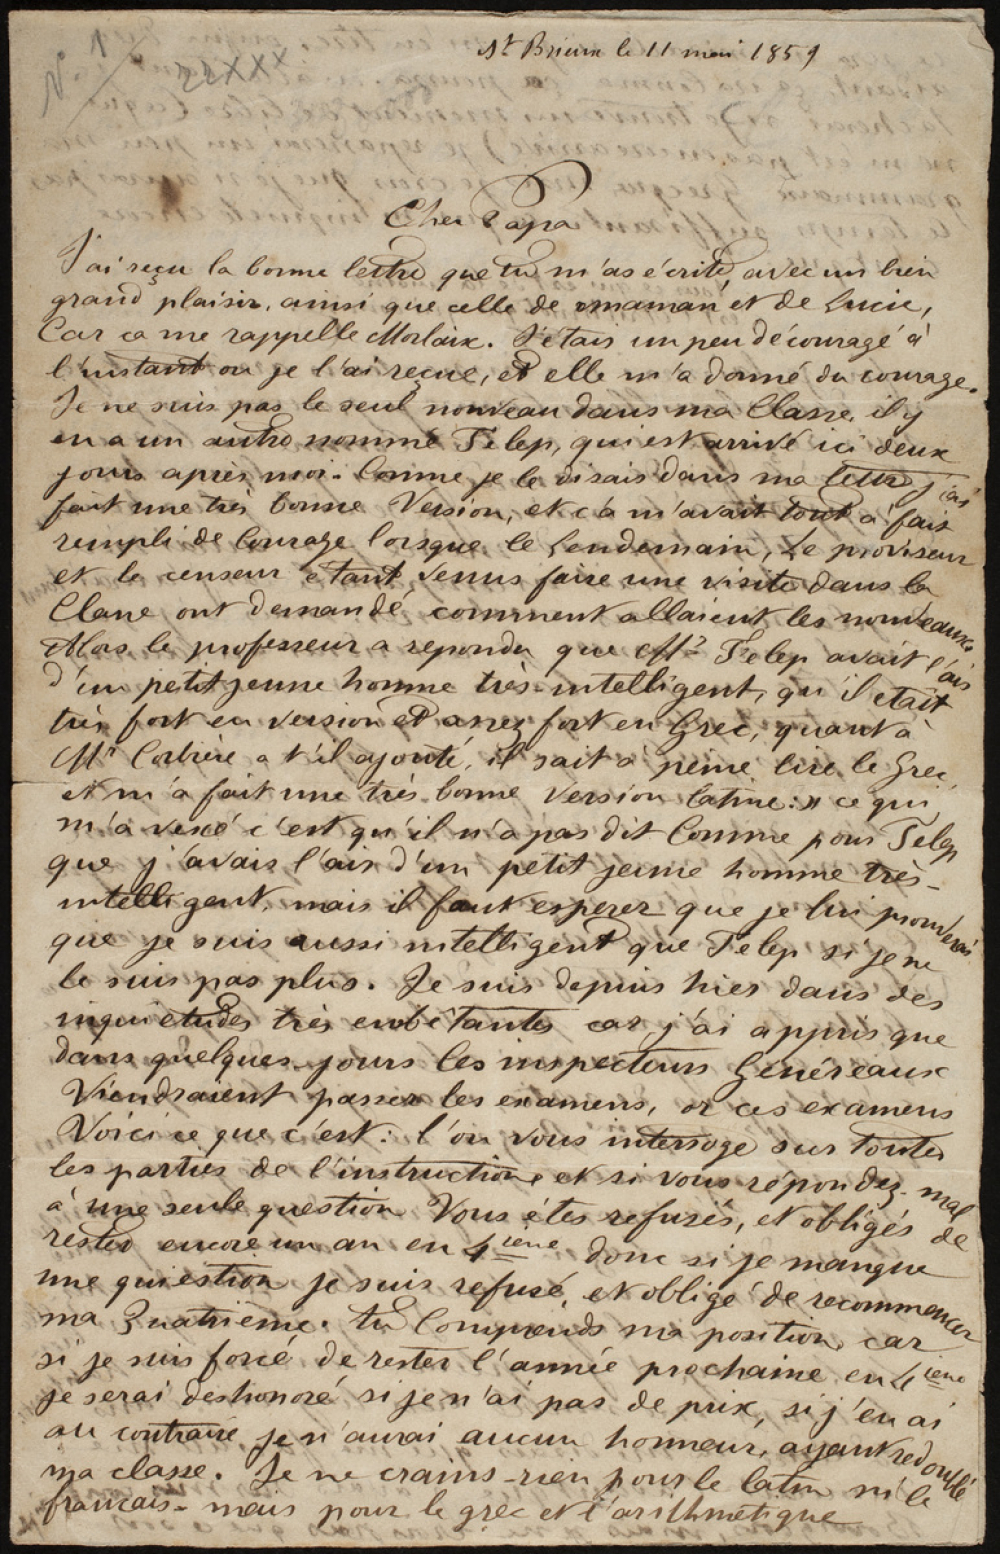 N. 1
St Brieux le 11 mai 1859
Cher Papa
J'ai reçu la bonne lettre que tu m'as écrite, avec un bien
grand plaisir, ainsi que celle de maman et de Lucie,
Car ca me rappelle Morlaix. J'étais un peu découragé à
l'instant ou je l'ai reçue, et elle m'a donné du courage.
Je ne suis pas le seul nouveau dans ma Classe, il y
en a un autre nommé Télep, qui est arrivé ici deux
jours après moi. Comme je le disais dans ma lettre j'ai
fait une très bonne Version, et ç'a m'avait tout à fait
rempli de Courage lorsque le Lendemain, Le proviseur
et le censeur étant venus faire une visite dans la
Classe ont demandé comment allaient les nouveaux.
Alors le professeur a repondu que Mr Télep avait l'air
d'un petit jeune homme très-intelligent, qu'il était
très fort en version et assez fort en Grec, quant à
Mr Corbière a t'il ajouté, il sait à peine lire le Grec,
et m'a fait une très bonne Version latine:» ce qui
m'a vexé c'est qu'il n'a pas dit Comme pour Télep
que j'avais l'air d'un petit jeune homme très-
intelligent, mais il faut esperer que je lui prouverai
que je suis aussi intelligent que Télep si je ne
le suis pas plus. Je suis depuis hier dans des
inquietudes très embétantes car j'ai appris que
dans quelques jours les inspecteurs Généreaux
Viendraient passer les examens, or ces examens
Voici ce que c'est: l'on vous interroge sur toutes
les parties de l'instruction et si vous répondez mal
à une seule question Vous étes refusés, et obligés de
rester encore un an en 4ieme donc si je manque
une quiestion je suis refusé, et obligé de recommencer
ma Quatrieme. tu Comprends ma position, car
si je suis forcé de rester l'année prochaine en 4ieme
je serai deshonoré si je n'ai pas de prix, si j'en ai
au contraire je n'aurai aucun honneur, ayant redoublé
ma classe. Je ne crains rien pour le latin ni le
francais- mais pour le grec et l'arithmétique